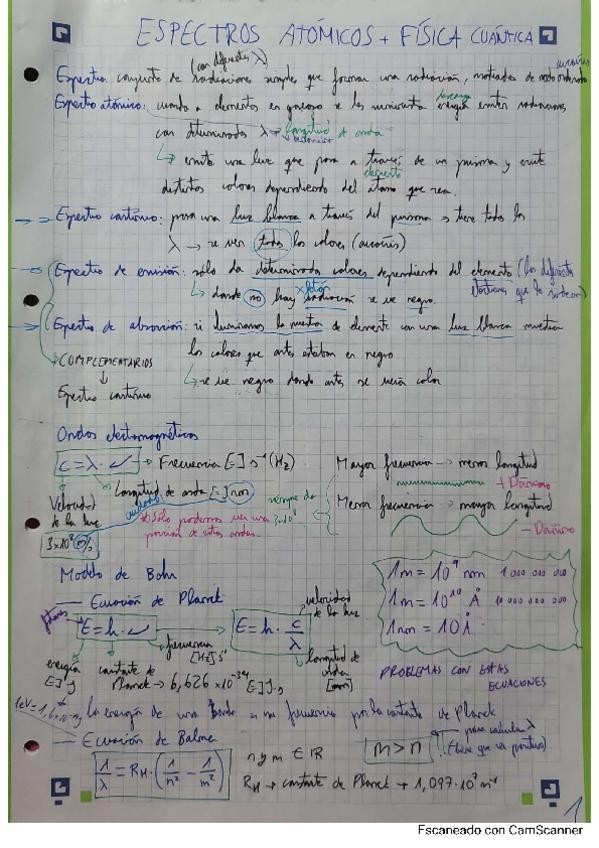 ESPECTROS ATÓMICOS + FÍSICA CUÁNTICA
(con diferentes λ)
Espectro: conjunto de radiaciones simples que forman una radiación, de modo
Espectro atómico: cuando a elementos en gaseoso se les suministra energía emiten radiaciones
descarga
con determinadas λ → longitud de onda
↳ emite una luz que pasa a través de un prisma y emite
elemento
distintos colores dependiendo del átomo que sea.
→ Espectro continuo: pasa una luz blanca a través del prisma → tiene todas las
λ → se ven todos los colores (arcoíris)
→ Espectro de emisión: sólo da determinados colores dependiendo del elemento (los diferentes
↳ donde no hay radiación se ve negro.
→ Espectro de absorción: si iluminamos la muestra de elemento con una luz blanca muestra
los colores que antes estaban en negro
COMPLEMENTARIOS
↳ se ve negro donde antes se veía color
Espectro continuo
Ondas electromagnéticas
c = λ · ν → Frecuencia [=] s⁻¹ (Hz)
Mayor frecuencia → menor longitud
Longitud de onda [=] nm
+ Dañino
Velocidad de la luz
siempre da 3×10⁸
Menor frecuencia → mayor longitud
3×10⁸ m/s
* Sólo podemos ver una porción de estas ondas.
- Dañino
Modelo de Bohr
1m = 10⁹ nm 1 000 000 000
— Ecuación de Planck
velocidad de la luz
1m = 10¹⁰ Å 10 000 000 000
E = h · ν
E = h · c/λ
1nm = 10 Å
frecuencia [Hz] s⁻¹
longitud de onda [nm]
energía [=] J
constante de Planck → 6,626 × 10⁻³⁴ [=] J·s
PROBLEMAS CON ESTAS ECUACIONES
La energía de una es su frecuencia por la constante de Planck
— Ecuación de Balmer
para calcular λ
(tiene que ser positivo)
1/λ = R_H · (1/n² − 1/m²)
n y m ∈ ℝ
m > n
R_H → constante de Planck → 1,097 · 10⁷ m⁻¹
1
Escaneado con CamScanner